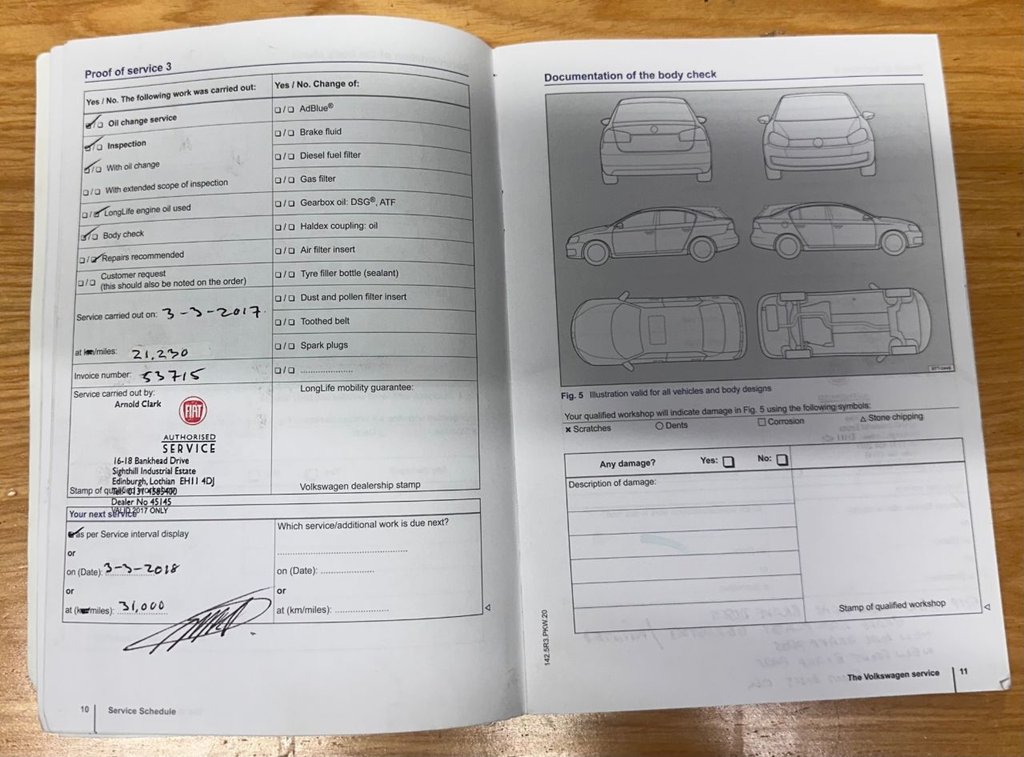 Proof of service 3
Yes / No. The following work was carried out:
Oil change service
Inspection
With oil change
With extended scope of inspection
LongLife engine oil used
Body check
Repairs recommended
Customer request
(this should also be noted on the order)
Service carried out on: 3-3-2017
at km/miles: 21,230
Invoice number: 53715
Service carried out by:
Arnold Clark
FIAT
AUTHORISED
SERVICE
16-18 Bankhead Drive
Sighthill Industrial Estate
Edinburgh, Lothian EH11 4DJ
Stamp of
Dealer No 45145
VALID 2017 ONLY
Yes / No. Change of:
AdBlue®
Brake fluid
Diesel fuel filter
Gas filter
Gearbox oil: DSG®, ATF
Haldex coupling: oil
Air filter insert
Tyre filler bottle (sealant)
Dust and pollen filter insert
Toothed belt
Spark plugs
LongLife mobility guarantee:
Volkswagen dealership stamp
Your next service
as per Service interval display
or
on (Date): 3-3-2018
or
at (km/miles): 31,000
Which service/additional work is due next?
on (Date):
or
at (km/miles):
10 Service Schedule
Documentation of the body check
Fig. 5 Illustration valid for all vehicles and body designs
Your qualified workshop will indicate damage in Fig. 5 using the following symbols:
× Scratches ○ Dents □ Corrosion △ Stone chipping
Any damage? Yes: No:
Description of damage:
Stamp of qualified workshop
142.5R3.PKW.20
The Volkswagen service 11